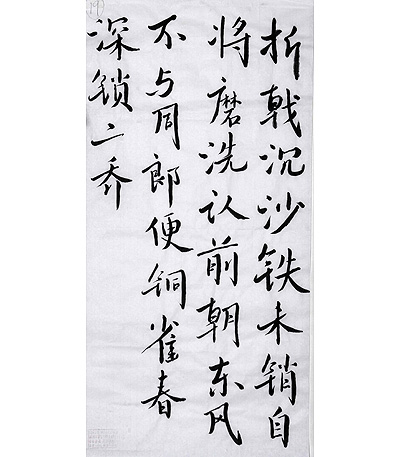 折戟沉沙铁未销自
将磨洗认前朝东风
不与周郎便铜雀春
深锁二乔